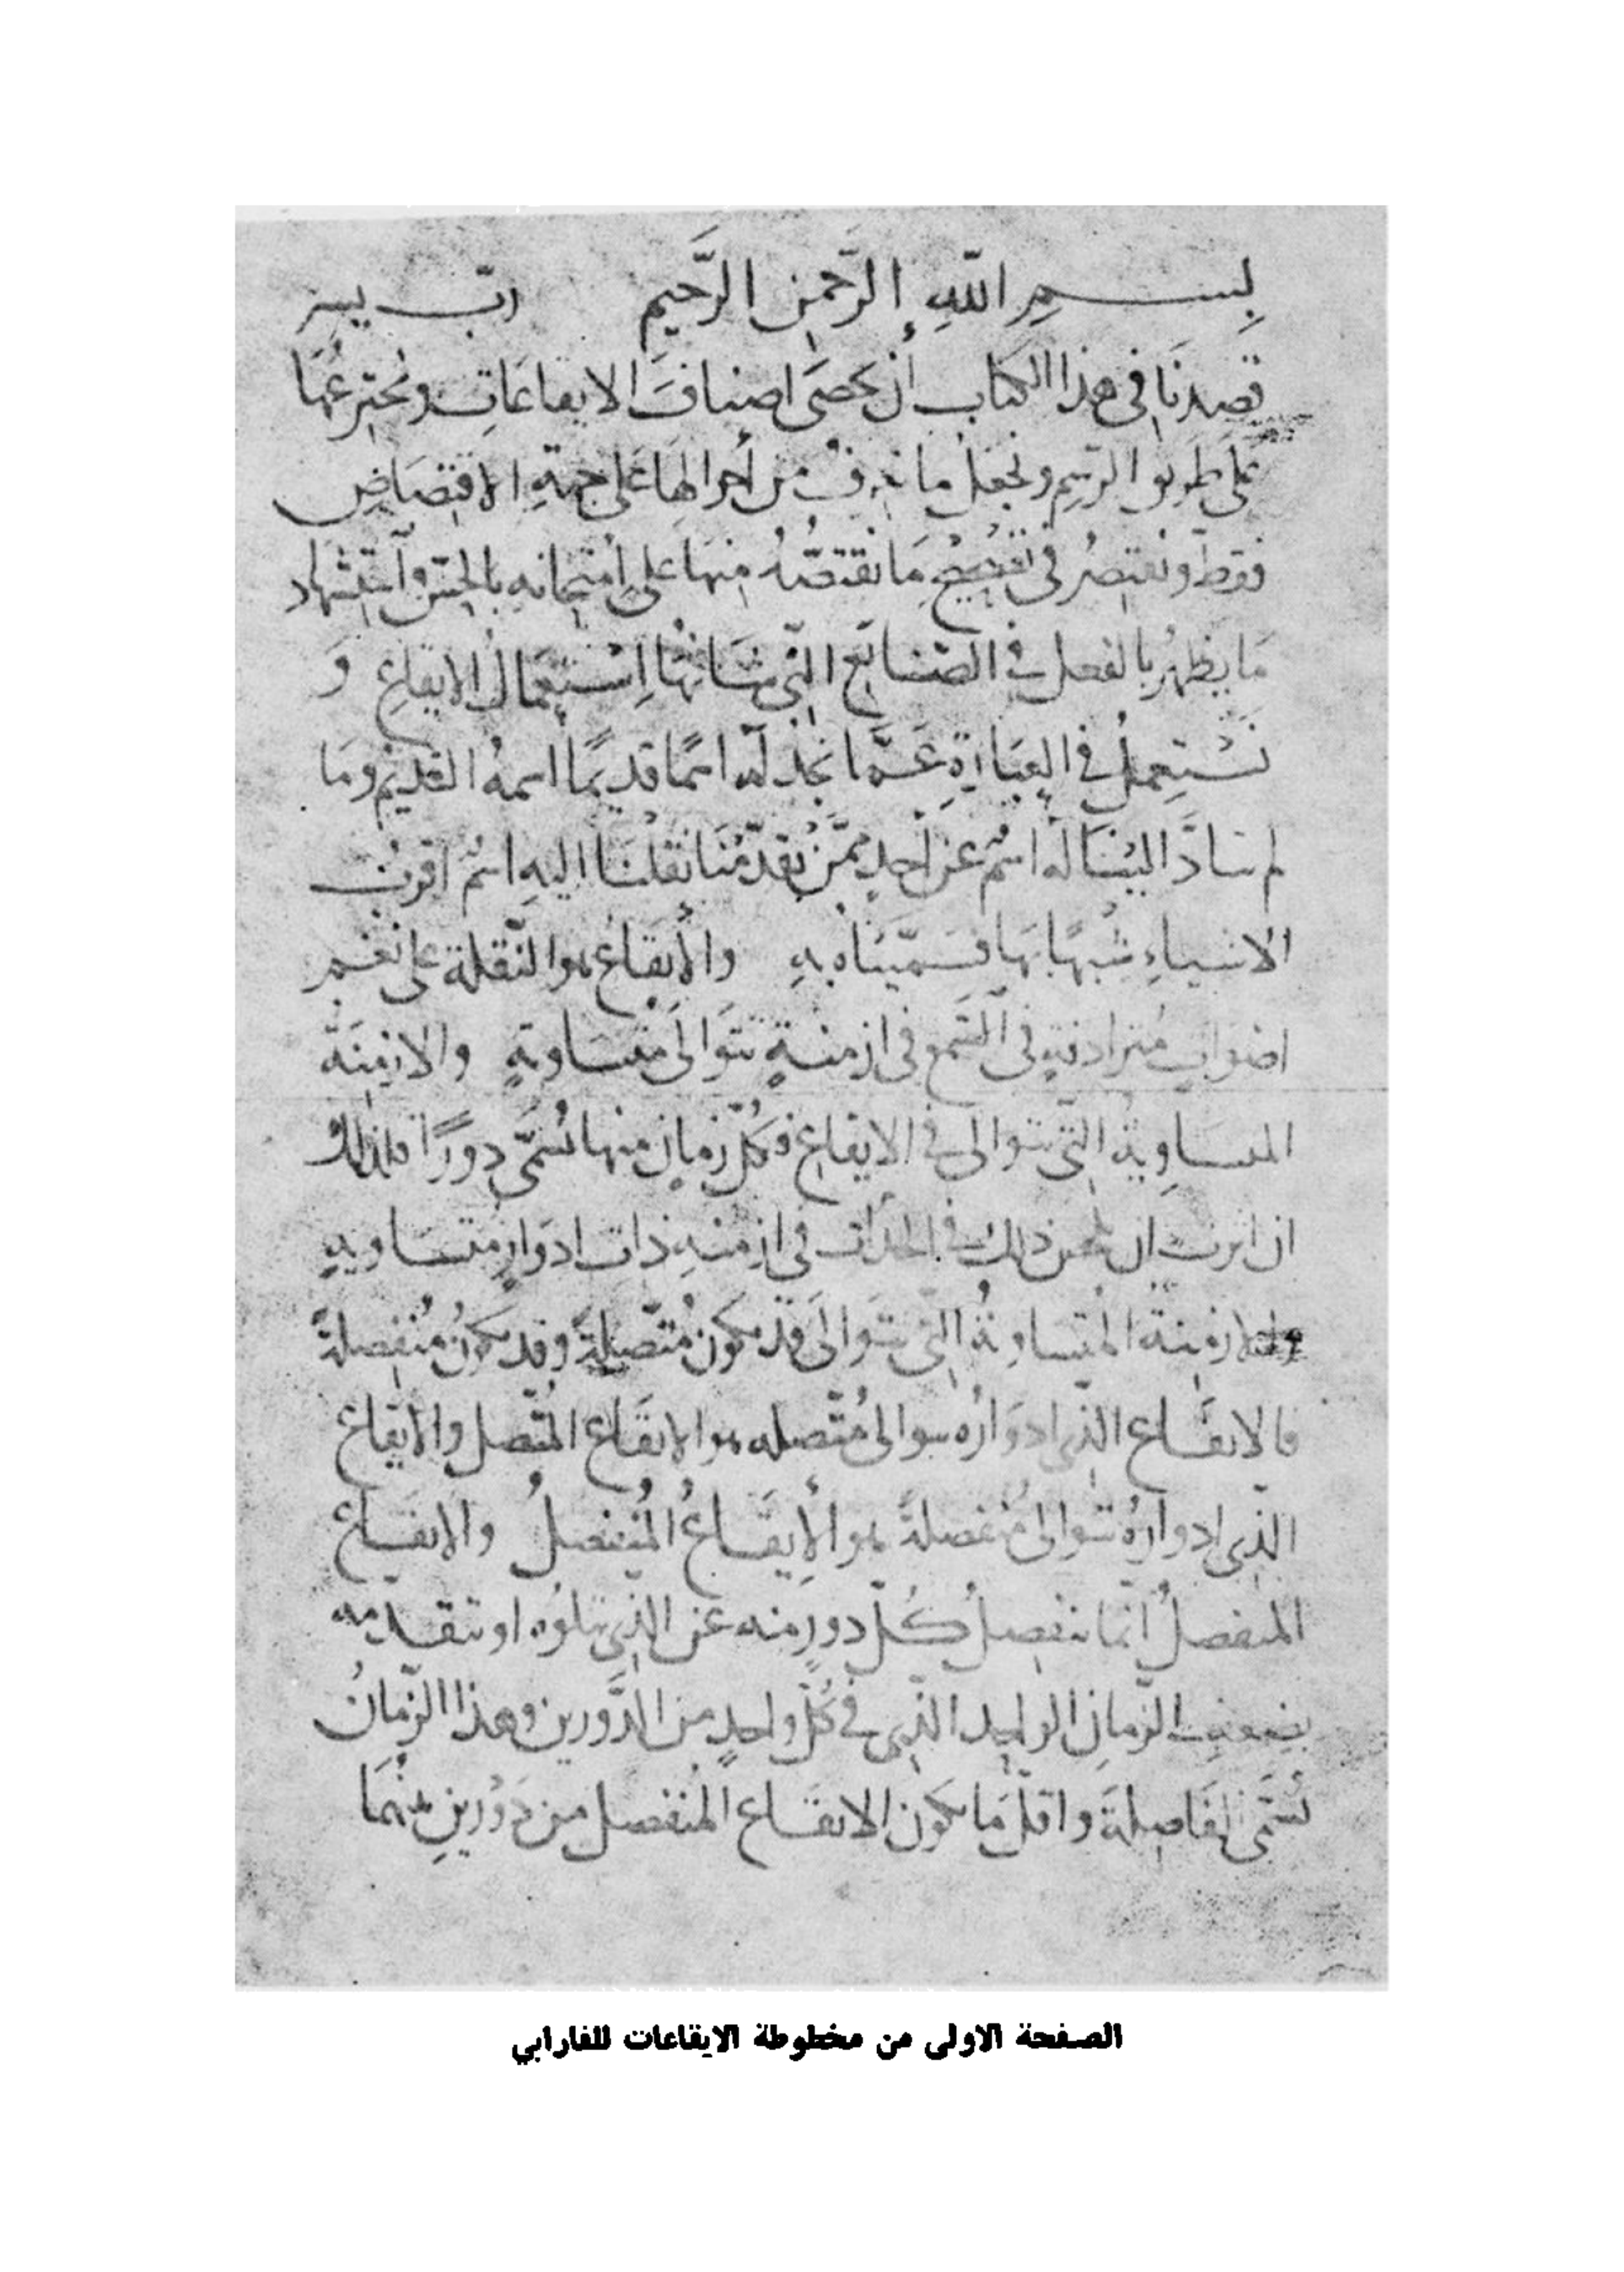 بِسمِ اللّهِ الرَّحمنِ الرَّحيم ربّ يسر
قصدنَا في هذا الكتاب أن نحصىَ اصنافَ الايقاعَاتِ ونخبر عنهَا
علَى طريق الرسمِ ونجعلَ ما نعرفُ من أحوالهَا علىَ جهةِ الاقتصَاصِ
فقط ونقتصرُ في تصحيحِ مَا نقتصّهُ منهَا على امتحانهِ بالحسّ واستشهاد
مَا يظهرُ بالفعل في الصّنَايع التي شأنهَا اِسْتِعمَالُ الايقاعِ وَ
نَسْتعملُ في العِبَارةِ عَمَّا نجدُ لهُ اسمًا قديمًا اسمهُ القديم ومَا
لم يتأدَّ الينَا لهُ اسمٌ عن أحدٍ ممّن تقدّمنَا نقلنَا اليهِ اسْمَ اقربِ
الاشياءِ شبهًا بهَا فسَمّينَاهُ بهِ والأيقاعُ هو النّقلة على نغم
اصْواتٍ مُترادفةٍ في السَّمع في ازمنةٍ تتوَالَى متسَاويةٍ والازمنَة
المتسَاوِية التي تتوالى في الايقاع فكلّ زمانٍ منها تُسمّى دورًا فلذلك
ان ذلك في في ازمنةٍ ذات ادوَارٍ متسَاويةٍ
والازمنة المتساويةُ التي تتوَالَى قدْ تكون مُتّصلةً وقد تكونُ مُنفصلةً
فالايقَاع الذي ادوَارُه تتوالى مُتّصله هو الايقَاع المتّصل والايقاع
الذّي ادوارهُ تتوالى مُنفصلةً هو الإيقَاعُ المُنفصلُ والايقَاع
المنفصلُ انّما ينفصلُ كُلّ دورٍ منه عن الذي يتلوُه او يتقدّمه
بضعفِ الزّمانِ الواحِد الذّي في كُلّ واحدٍ من الدَّورين وهذا الزّمانُ
تُسَمّى الفَاصِلةَ واقلّ مَا يكون الايقَاع المُنفصل من دَوْرينِ بينهمَا
الصفحة الاولى من مخطوطة الايقاعات للفارابي